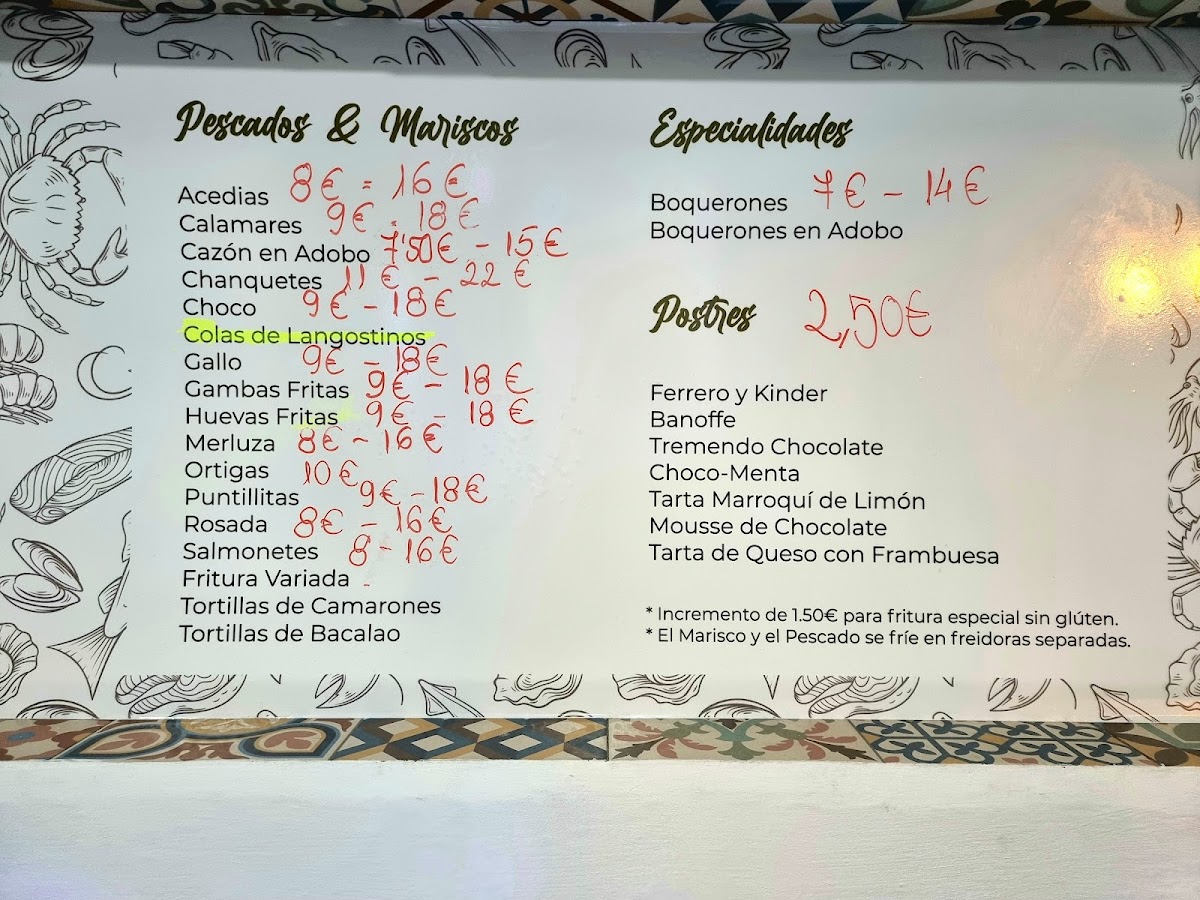 Pescados & Mariscos
Acedias 8€ - 16€
Calamares 9€ - 18€
Cazón en Adobo 7'50€ - 15€
Chanquetes 11€ - 22€
Choco 9€ - 18€
Colas de Langostinos
Gallo 9€ - 18€
Gambas Fritas 9€ - 18€
Huevas Fritas 9€ - 18€
Merluza 8€ - 16€
Ortigas 10€
Puntillitas 9€ - 18€
Rosada 8€ - 16€
Salmonetes 8 - 16€
Fritura Variada -
Tortillas de Camarones
Tortillas de Bacalao
Especialidades
Boquerones 7€ - 14€
Boquerones en Adobo
Postres 2,50€
Ferrero y Kinder
Banoffe
Tremendo Chocolate
Choco-Menta
Tarta Marroquí de Limón
Mousse de Chocolate
Tarta de Queso con Frambuesa
* Incremento de 1.50€ para fritura especial sin glúten.
* El Marisco y el Pescado se fríe en freidoras separadas.